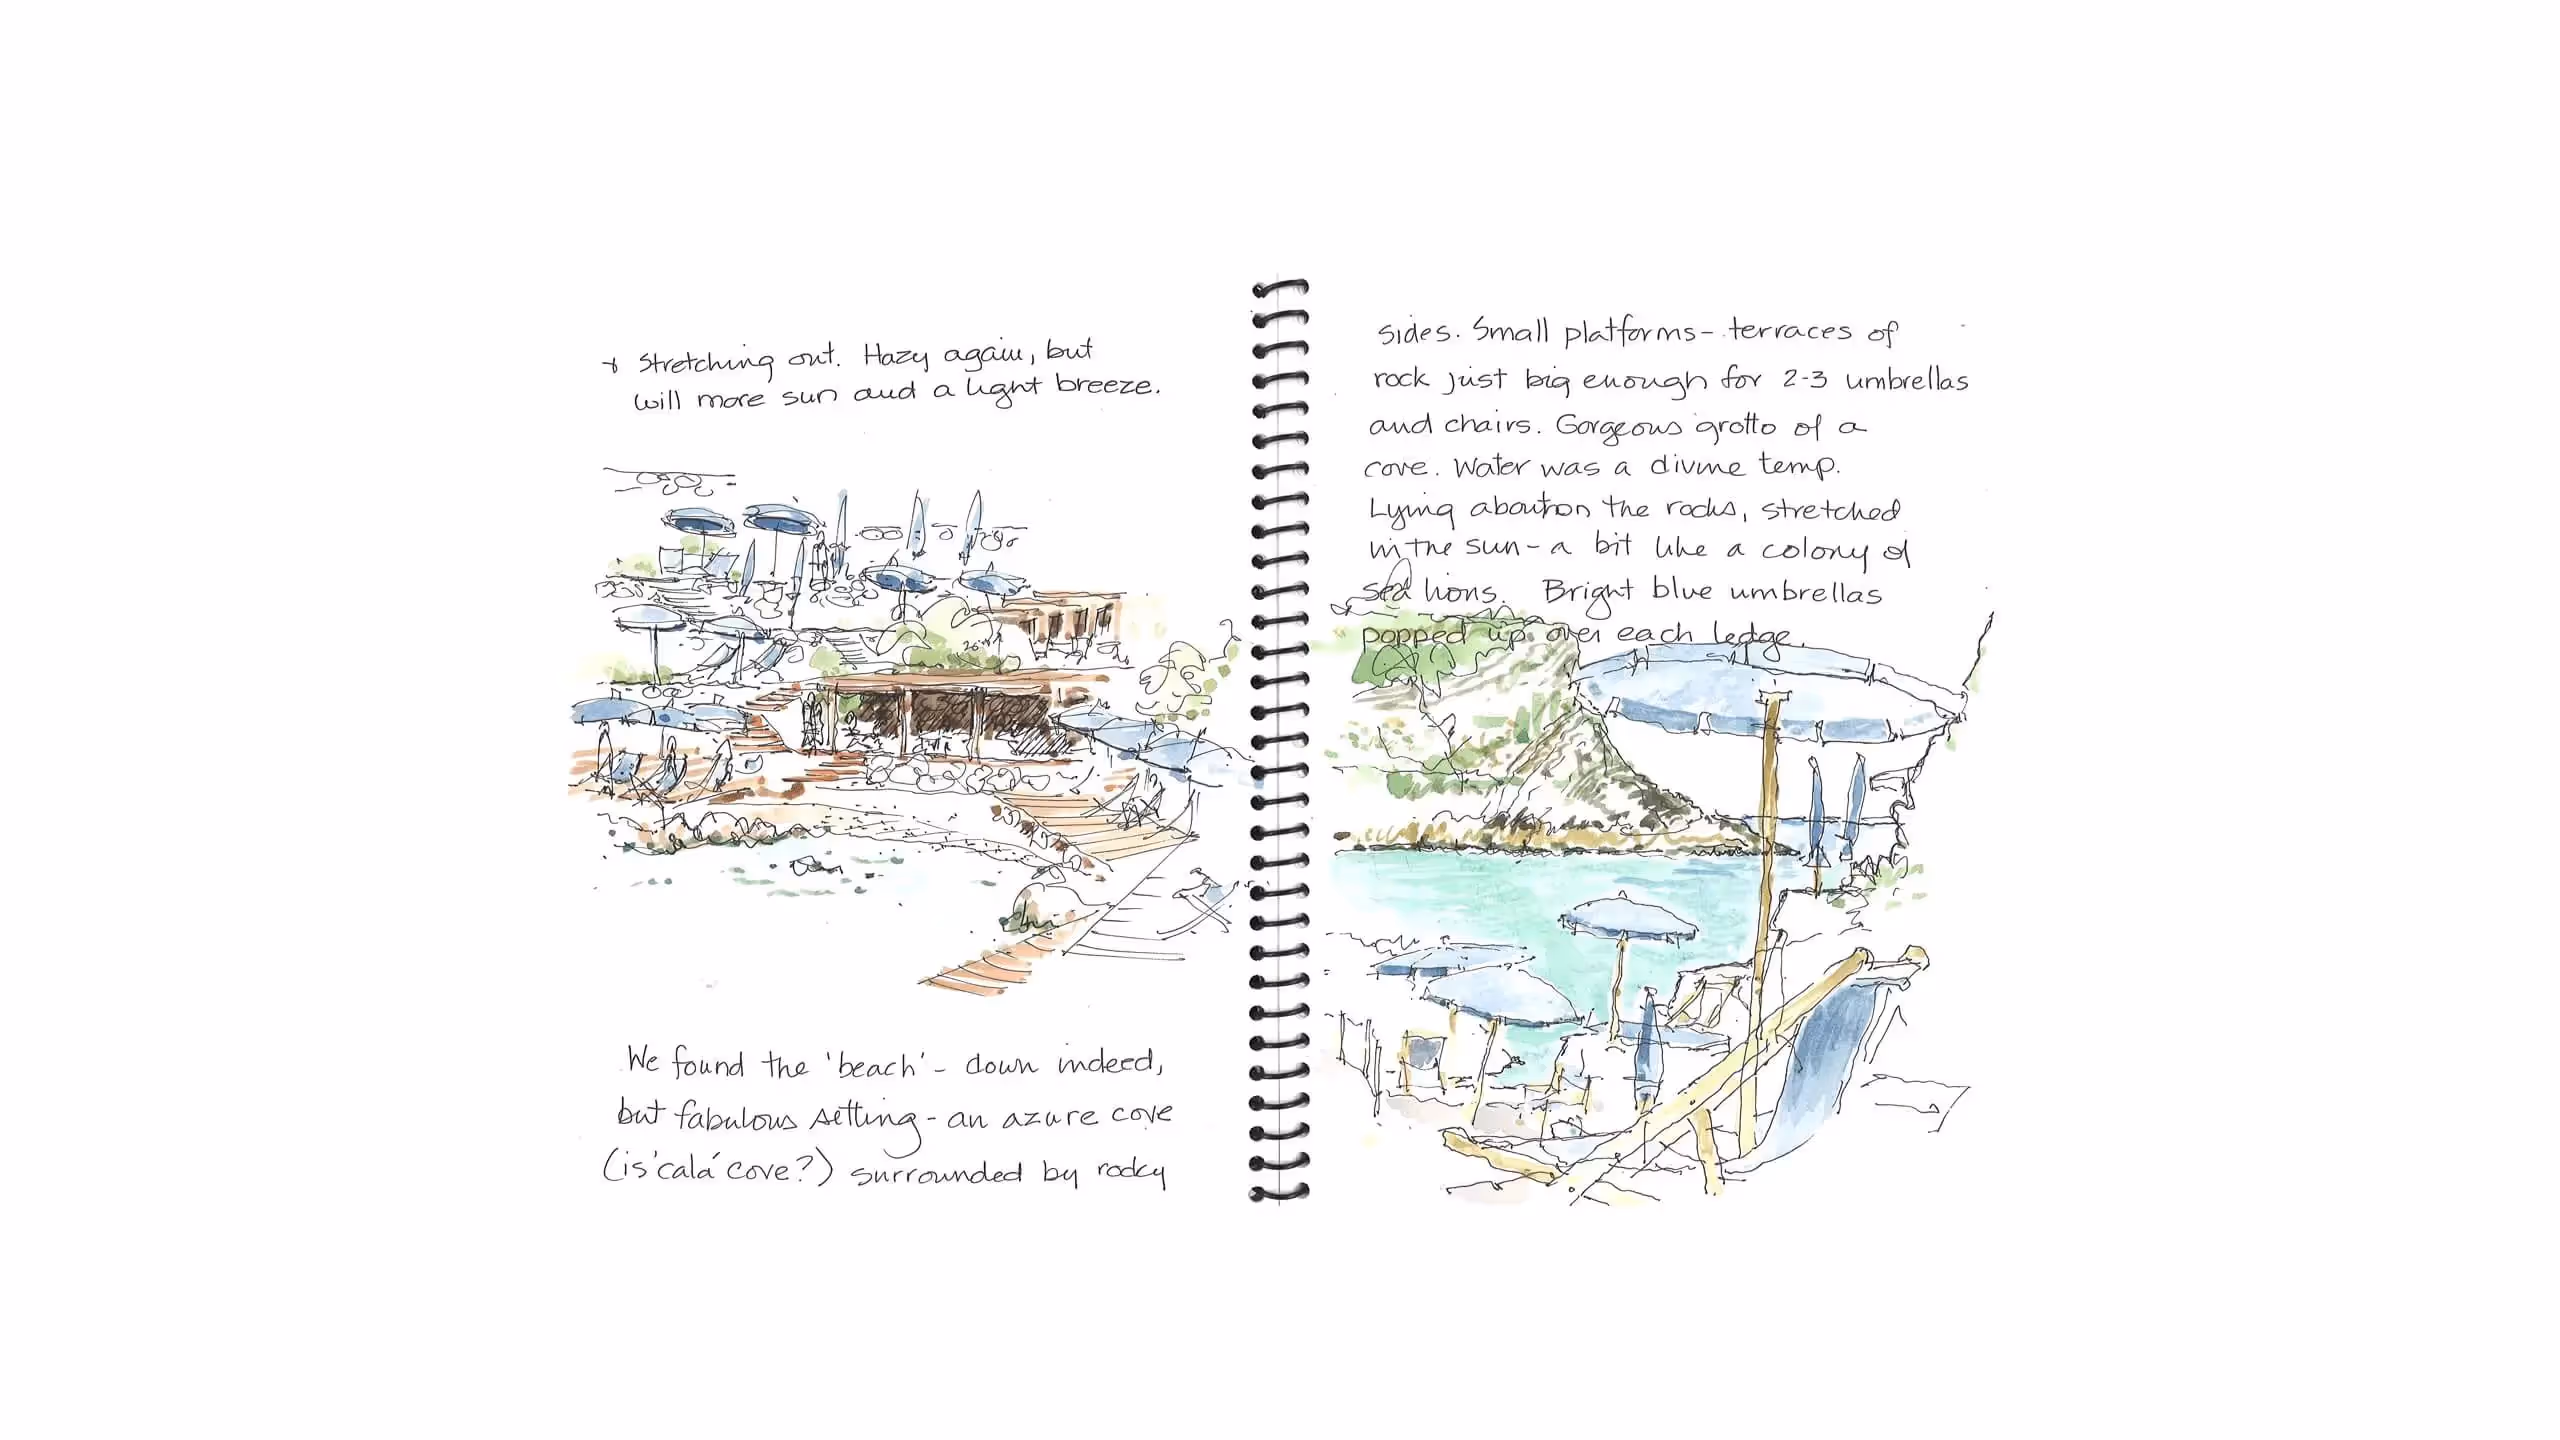 + Stretching out. Hazy again, but
will more sun and a light breeze.
We found the 'beach' - down indeed,
but fabulous setting - an azure cove
(is 'cala' cove?) surrounded by rocky
sides. Small platforms - terraces of
rock just big enough for 2-3 umbrellas
and chairs. Gorgeous grotto of a
cove. Water was a divine temp.
Lying about on the rocks, stretched
in the sun - a bit like a colony of
sea lions. Bright blue umbrellas
popped up over each ledge.